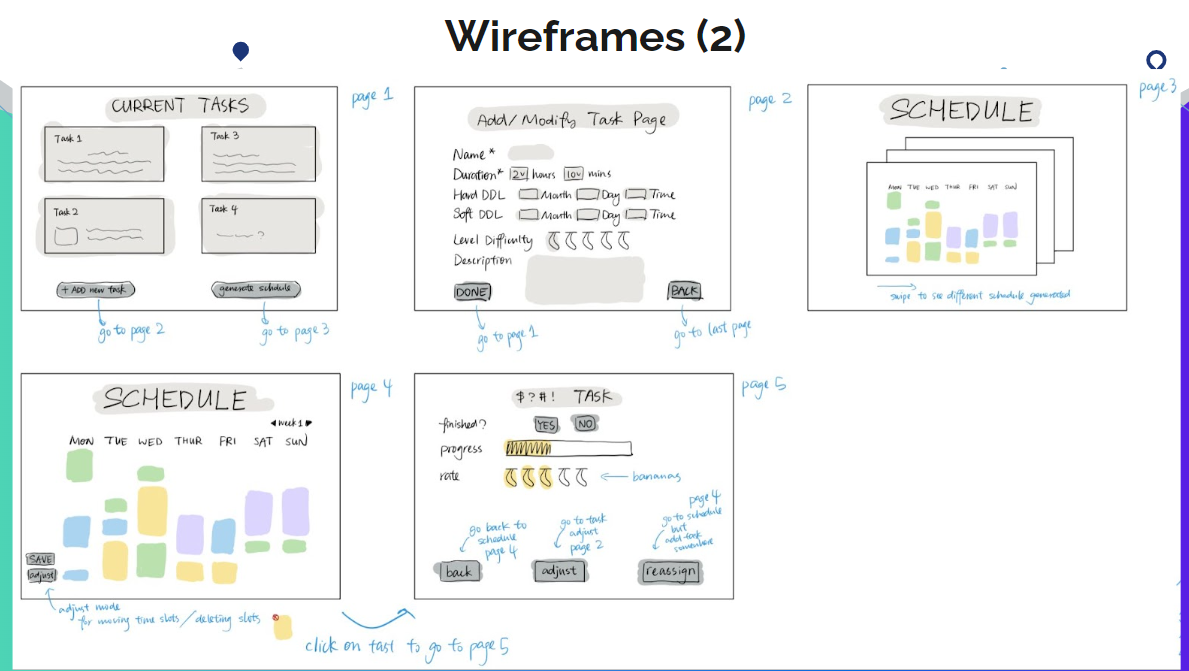 Wireframes (2)
CURRENT TASKS
page 1
Task 1
Task 3
Task 2
Task 4
?
+ ADD new task
generate schdule
go to page 2
go to page 3
Add/Modify Task Page
page 2
Name *
Duration* 2v hours 10v mins
Hard DDL Month Day Time
Soft DDL Month Day Time
Level Difficulty
Description
DONE
BACK
go to page 1
go to last page
SCHEDULE
page 3
MON TUE WED THUR FRI SAT SUN
swipe to see different schedule generated
SCHEDULE
page 4
◀ week 1 ▶
MON TUE WED THUR FRI SAT SUN
SAVE
adjust
adjust mode
for moving time slots/deleting slots
click on task to go to page 5
$?#! TASK
page 5
finished? YES NO
progress
rate
bananas
go back to
schedule
page 4
go to task
adjust
page 2
page 4
go to schedule
but
add task
somewhere
back
adjust
reassign